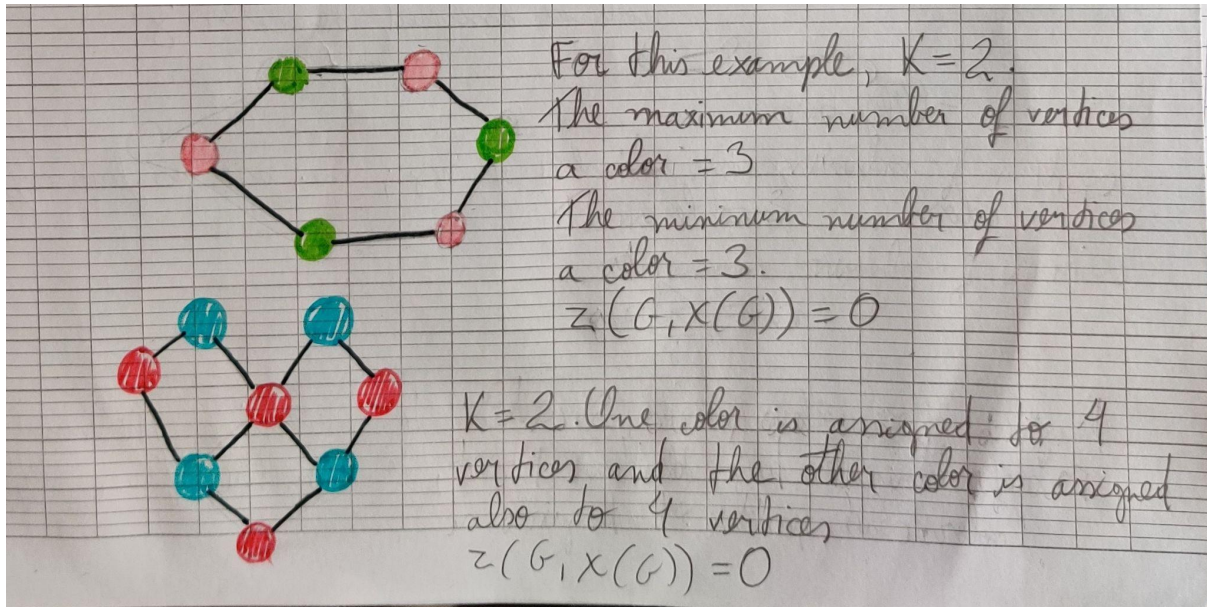 For this example, K=2.
The maximum number of vertices
a color = 3
The mininum number of vertices
a color = 3.
z(G,X(G)) = 0
K=2. One color is assigned to 4
vertices and the other color is assigned
also to 4 vertices
z(G,X(G)) = 0